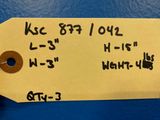 KSC 877/042
L-3" H-15"
W-3" WGHT-4lbs
QTY-3